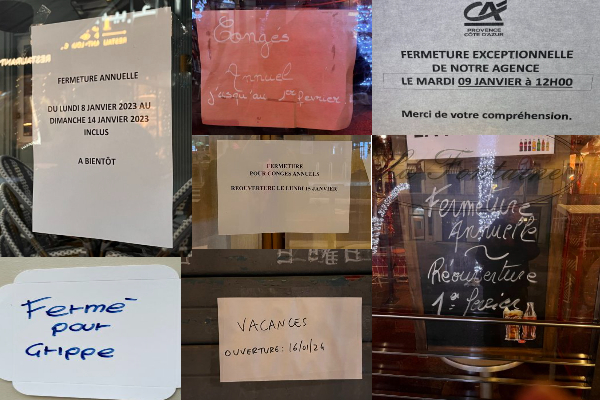 FERMETURE ANNUELLE
DU LUNDI 8 JANVIER 2023 AU
DIMANCHE 14 JANVIER 2023
INCLUS
A BIENTÔT
Conges
Annuel
jusqu'au 1er Fevrier
CA
PROVENCE
CÔTE D'AZUR
FERMETURE EXCEPTIONNELLE
DE NOTRE AGENCE
LE MARDI 09 JANVIER à 12H00
Merci de votre compréhension.
FERMETURE
POUR CONGES ANNUELS
REOUVERTURE LE LUNDI 15 JANVIER
La Fontaine
Fermeture
Annuelle
~
Réouverture
1er Février
Fermé
pour
Grippe
VACANCES
OUVERTURE: 16/01/24